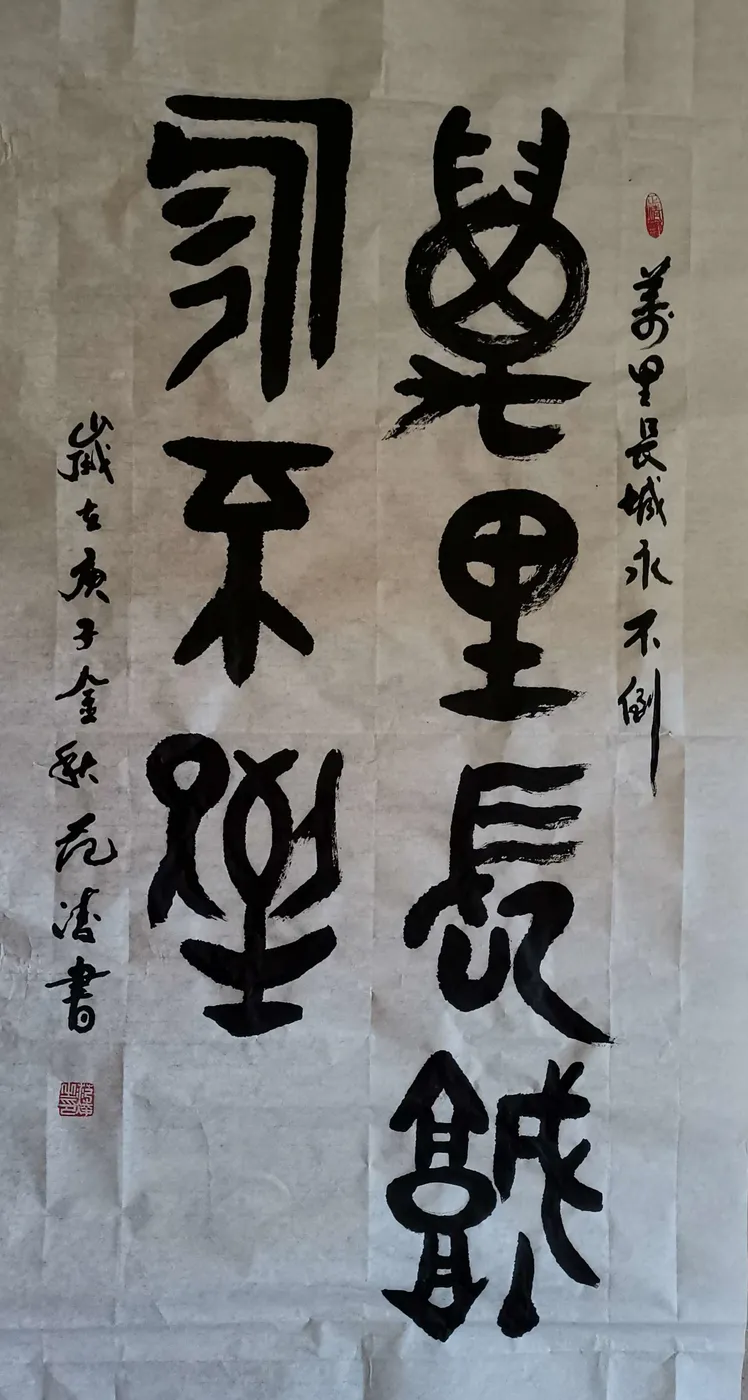 萬里長城永不倒
萬里長城
永不倒
歲在庚子金秋范濤書